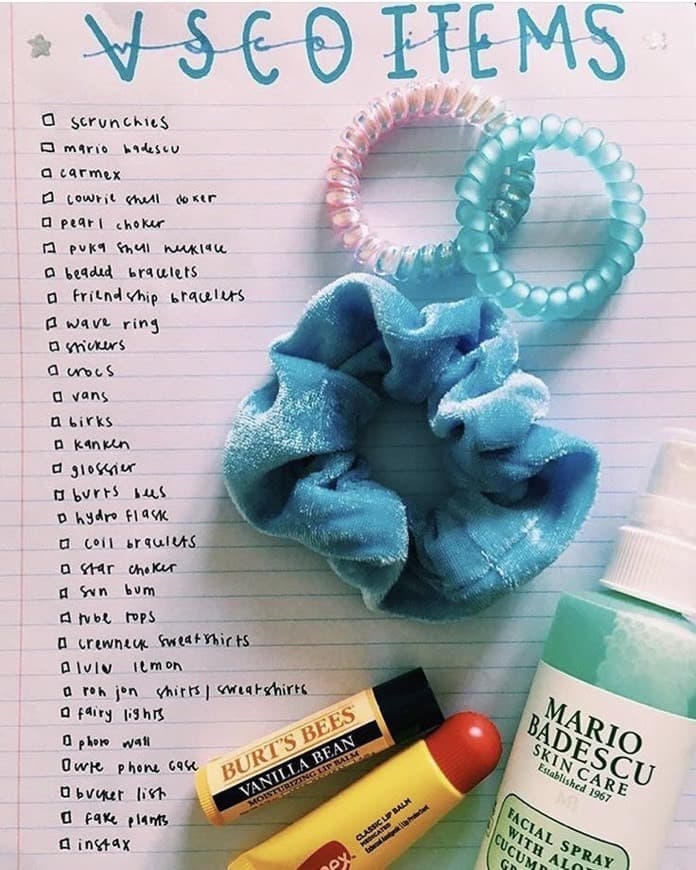 VSCO ITEMS
vsco items
scrunchies
mario badescu
carmex
cowrie shell coker
pearl choker
puka shell necklace
beaded bracelets
friendship bracelets
wave ring
stickers
crocs
vans
birks
kanken
glossier
burts bees
hydro flask
coil bracelets
star choker
sun bum
tube tops
crewneck sweatshirts
lulu lemon
ron jon shirts/sweatshirts
fairy lights
photo wall
cute phone case
bucket list
fake plants
instax
BURT'S BEES
VANILLA BEAN
MOISTURIZING LIP BALM
CLASSIC LIP BALM
MEDICATED
External Analgesic | Lip Protectant
MARIO
BADESCU
SKIN CARE
Established 1967
FACIAL SPRAY
WITH ALOE
CUCUM
GR